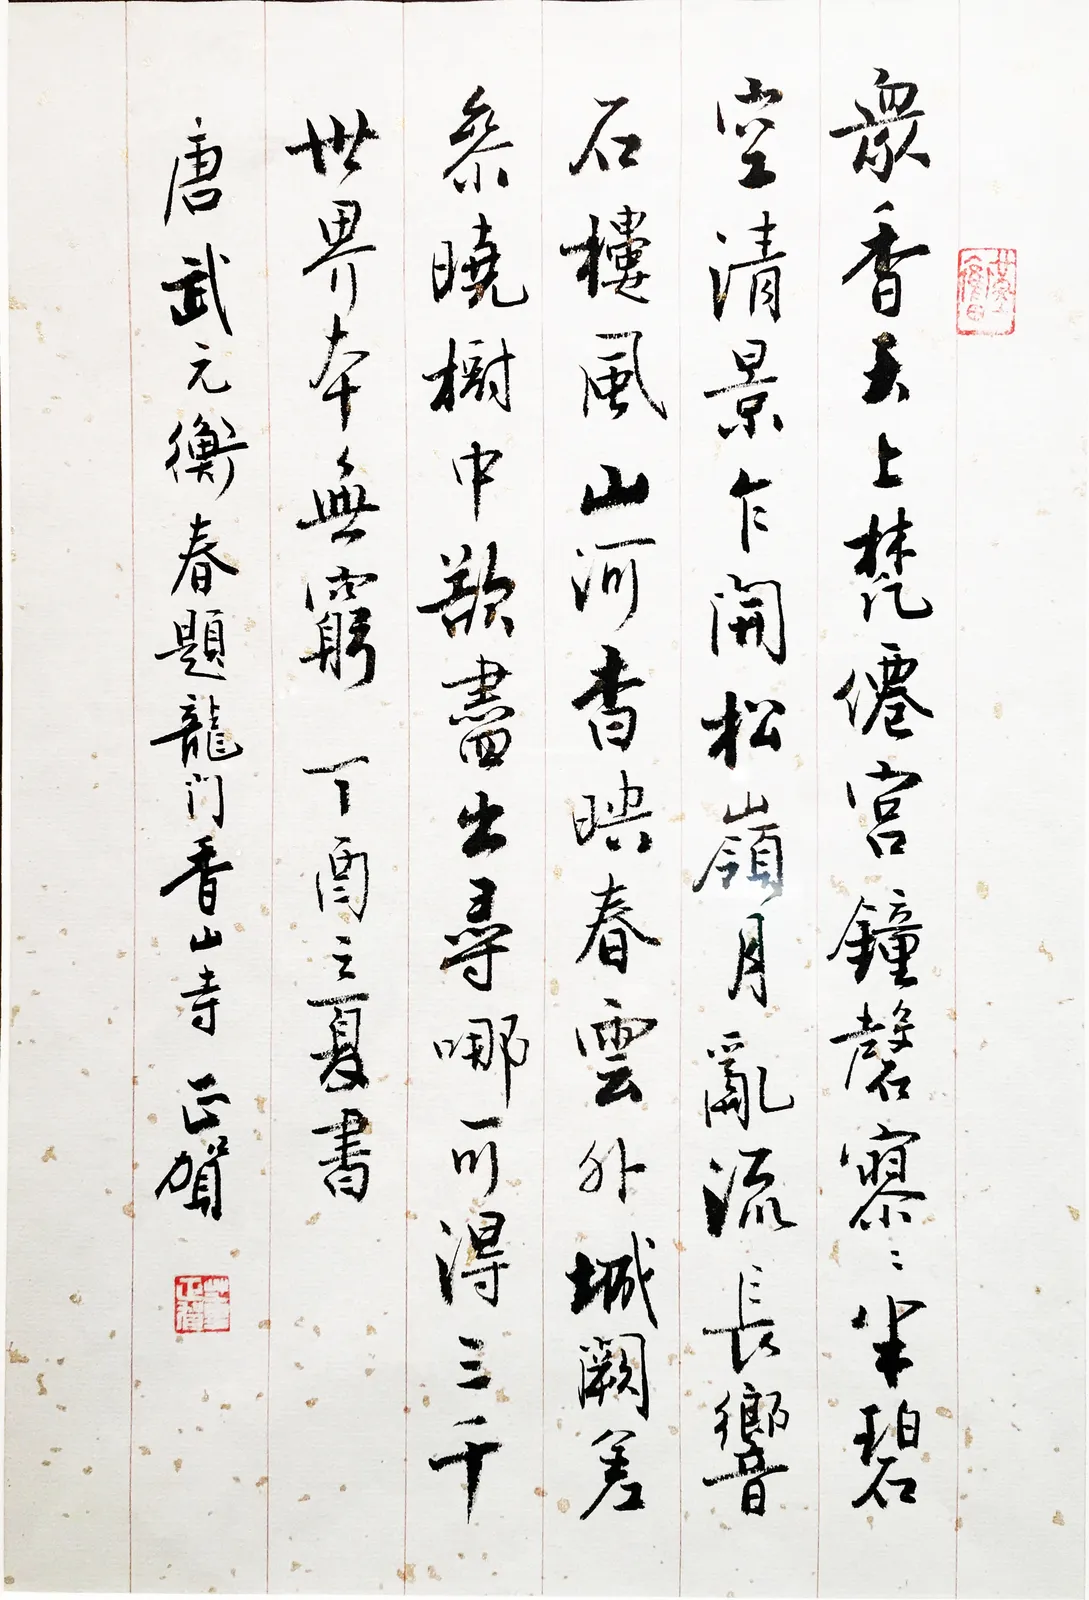 衆香天上梵僊宮鐘磬寥〻半碧
空清景乍開松嶺月亂流長響
石樓風山河杳映春雲外城闕差
參曉樹中欲盡出尋哪可得三千
世界本無窮 丁酉立夏書
唐武元衡春題龍门香山寺 正賀